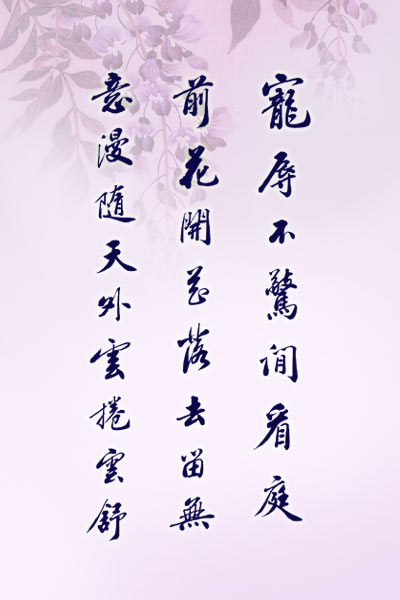 寵辱不驚閒看庭
前花開花落去留無
意漫隨天外雲捲雲舒